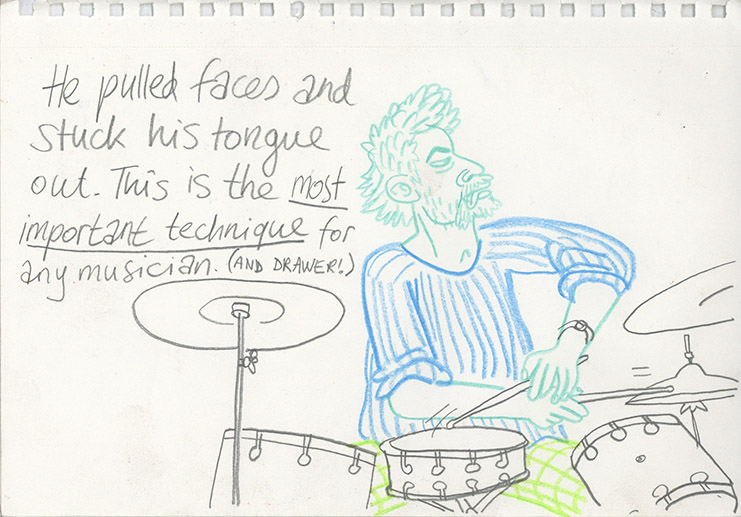 He pulled faces and
stuck his tongue
out. This is the most
important technique for
any musician. (AND DRAWER!)